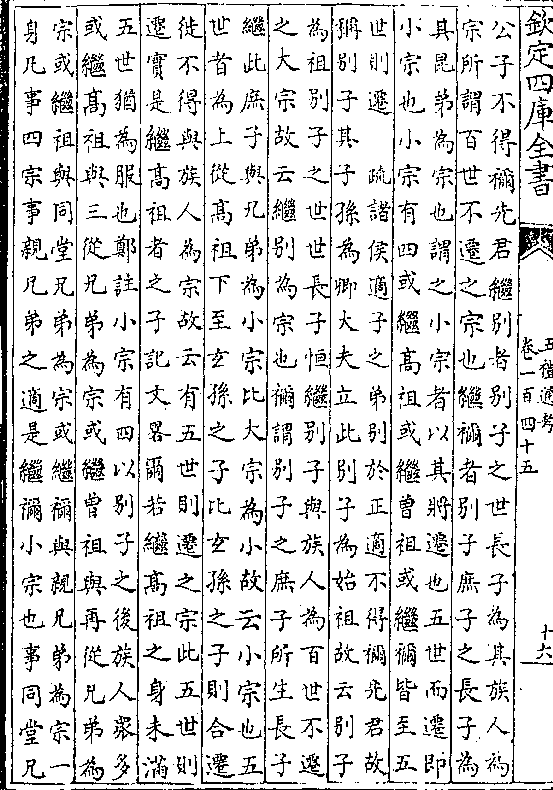 欽定四庫全書
五禮通考
卷一百四十五
十六
公子不得禰先君繼別者別子之世長子為其族人為
宗所謂百世不遷之宗也繼禰者別子庶子之長子為
其昆弟為宗也謂之小宗者以其將遷也五世而遷即
小宗也小宗有四或繼高祖或繼曾祖或繼禰皆至五
世則遷　疏諸侯適子之弟別於正適不得禰先君故
稱別子其子孫為卿大夫立此別子為始祖故云別子
為祖別子之世世長子恒繼別子與族人為百世不遷
之大宗故云繼別為宗也禰謂別子之庶子所生長子
繼此庶子與兄弟為小宗比大宗為小故云小宗也五
世者為上從高祖下至玄孫之子比玄孫之子則合遷
徙不得與族人為宗故云有五世則遷之宗此五世則
遷實是繼高祖者之子記文畧爾若繼高祖之身未滿
五世猶為服也鄭註小宗有四以別子之後族人衆多
或繼高祖與三從兄弟為宗或繼曾祖與再從兄弟為
宗或繼祖與同堂兄弟為宗或繼禰與親兄弟為宗一
身凡事四宗事親兄弟之適是繼禰小宗也事同堂兄